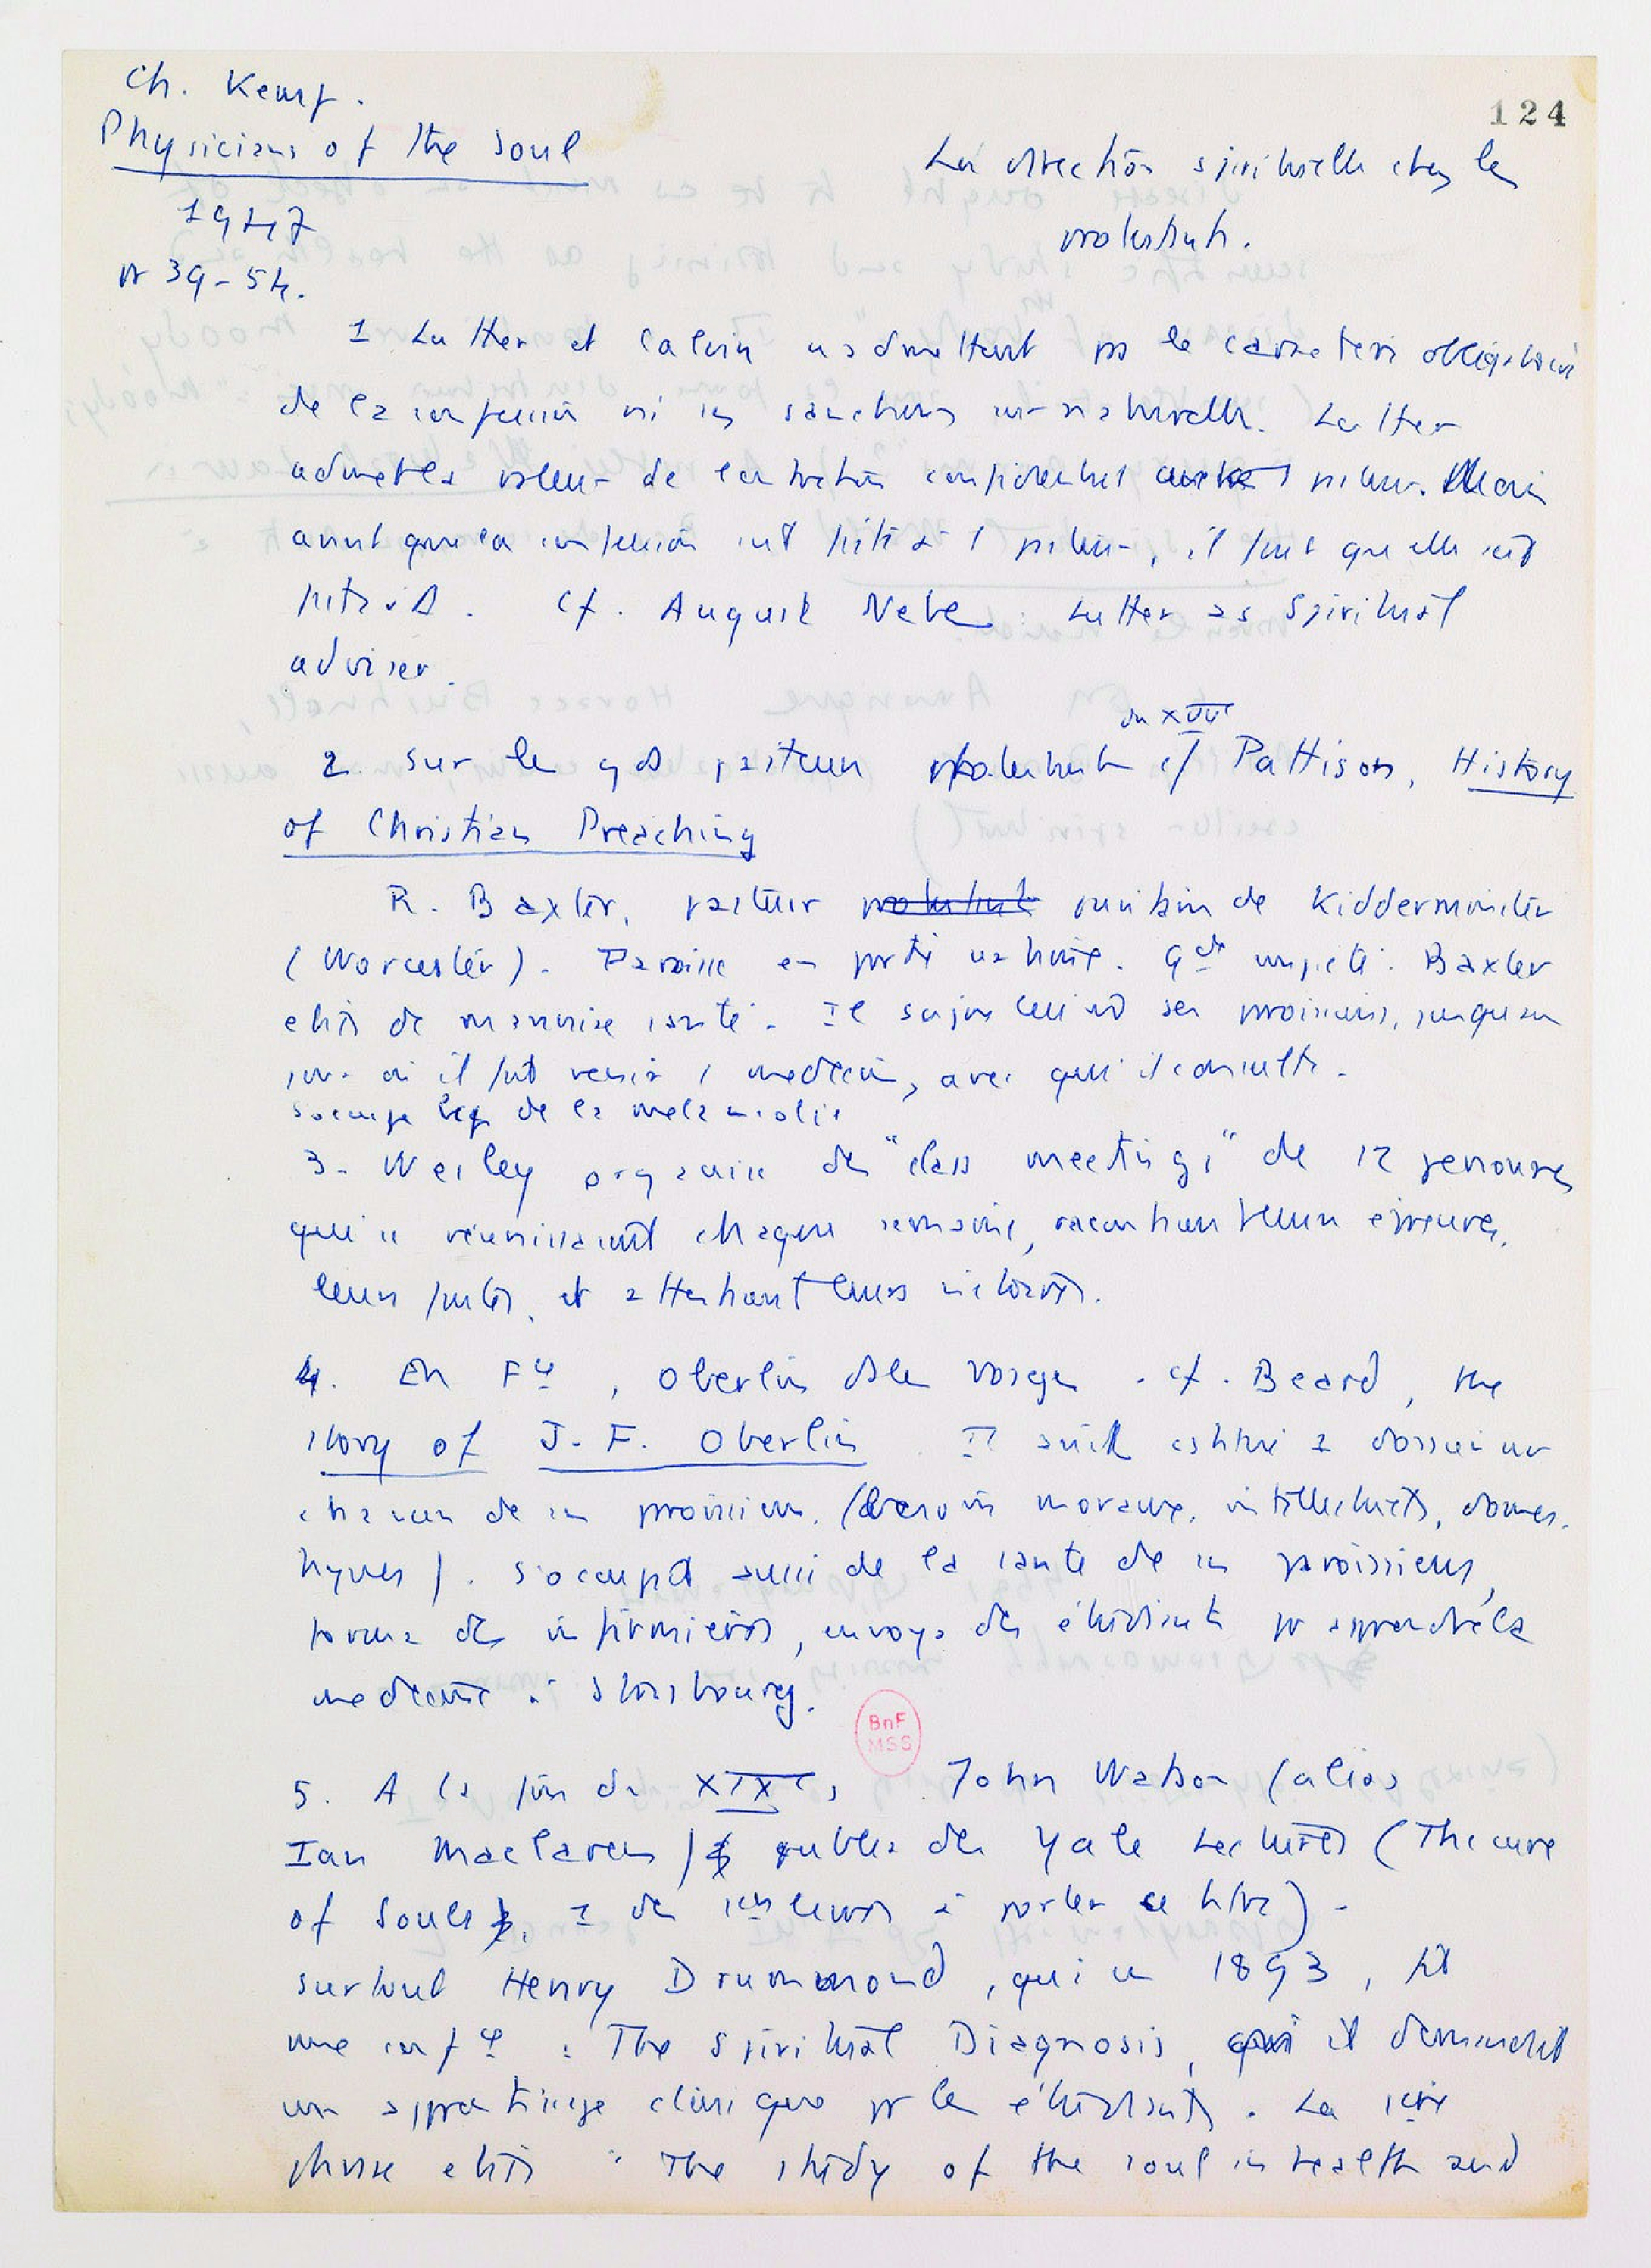 124
Ch. Kempf.
Physicians of the Soul
1947
pp 39-54.
La direction spirituelle chez les
protestants.
1 Luther et Calvin n'admettent pas le caractère obligatoire
de la confession ni les sanctions surnaturelles. Luther
admet la valeur de l'entretien confidentiel avec le pasteur. Mais
avant que la confession soit faite à 1 pasteur, il faut qu'elle soit
faite à D. Cf. August Nebe : Luther as Spiritual
adviser.
2. Sur les gds pasteurs protestants du XVIIe cf Pattison, History
of Christian Preaching
R. Baxter, pasteur puritain de Kidderminster
(Worcester). Paroisse en partie Gde impiété. Baxter
était de mauvaise santé. Il soignait ses paroissiens, jusqu'au
jour où il fit venir 1 médecin, avec qui il consulte.
S'occupe de la mélancolie
3. Wesley organise des "class meetings" de 12 personnes
qui se réunissaient chaque semaine, racontant leurs épreuves,
leurs fautes, et attestant leurs victoires.
4. En Fce, Oberlin ds les Vosges. cf. Beard, the
story of J. F. Oberlin. Il avait 1 dossier sur
chacun de ses paroissiens. (besoins moraux, intellectuels, domes-
tiques). S'occupait aussi de la santé de ses paroissiens,
forma des infirmières, envoya des étudiants pr apprendre la
médecine à Strasbourg.
BnF
MSS
5. A la fin du XIXe s, John Watson (alias
Ian Maclaren) publia des Yale Lectures (The cure
of Souls, 1 des 1ers livres à porter ce titre).
surtout Henry Drummond, qui en 1893, fit
une confce : The Spiritual Diagnosis, où il demandait
un apprentissage clinique pr les étudiants. La 1ère
phrase était : "The study of the soul in health and